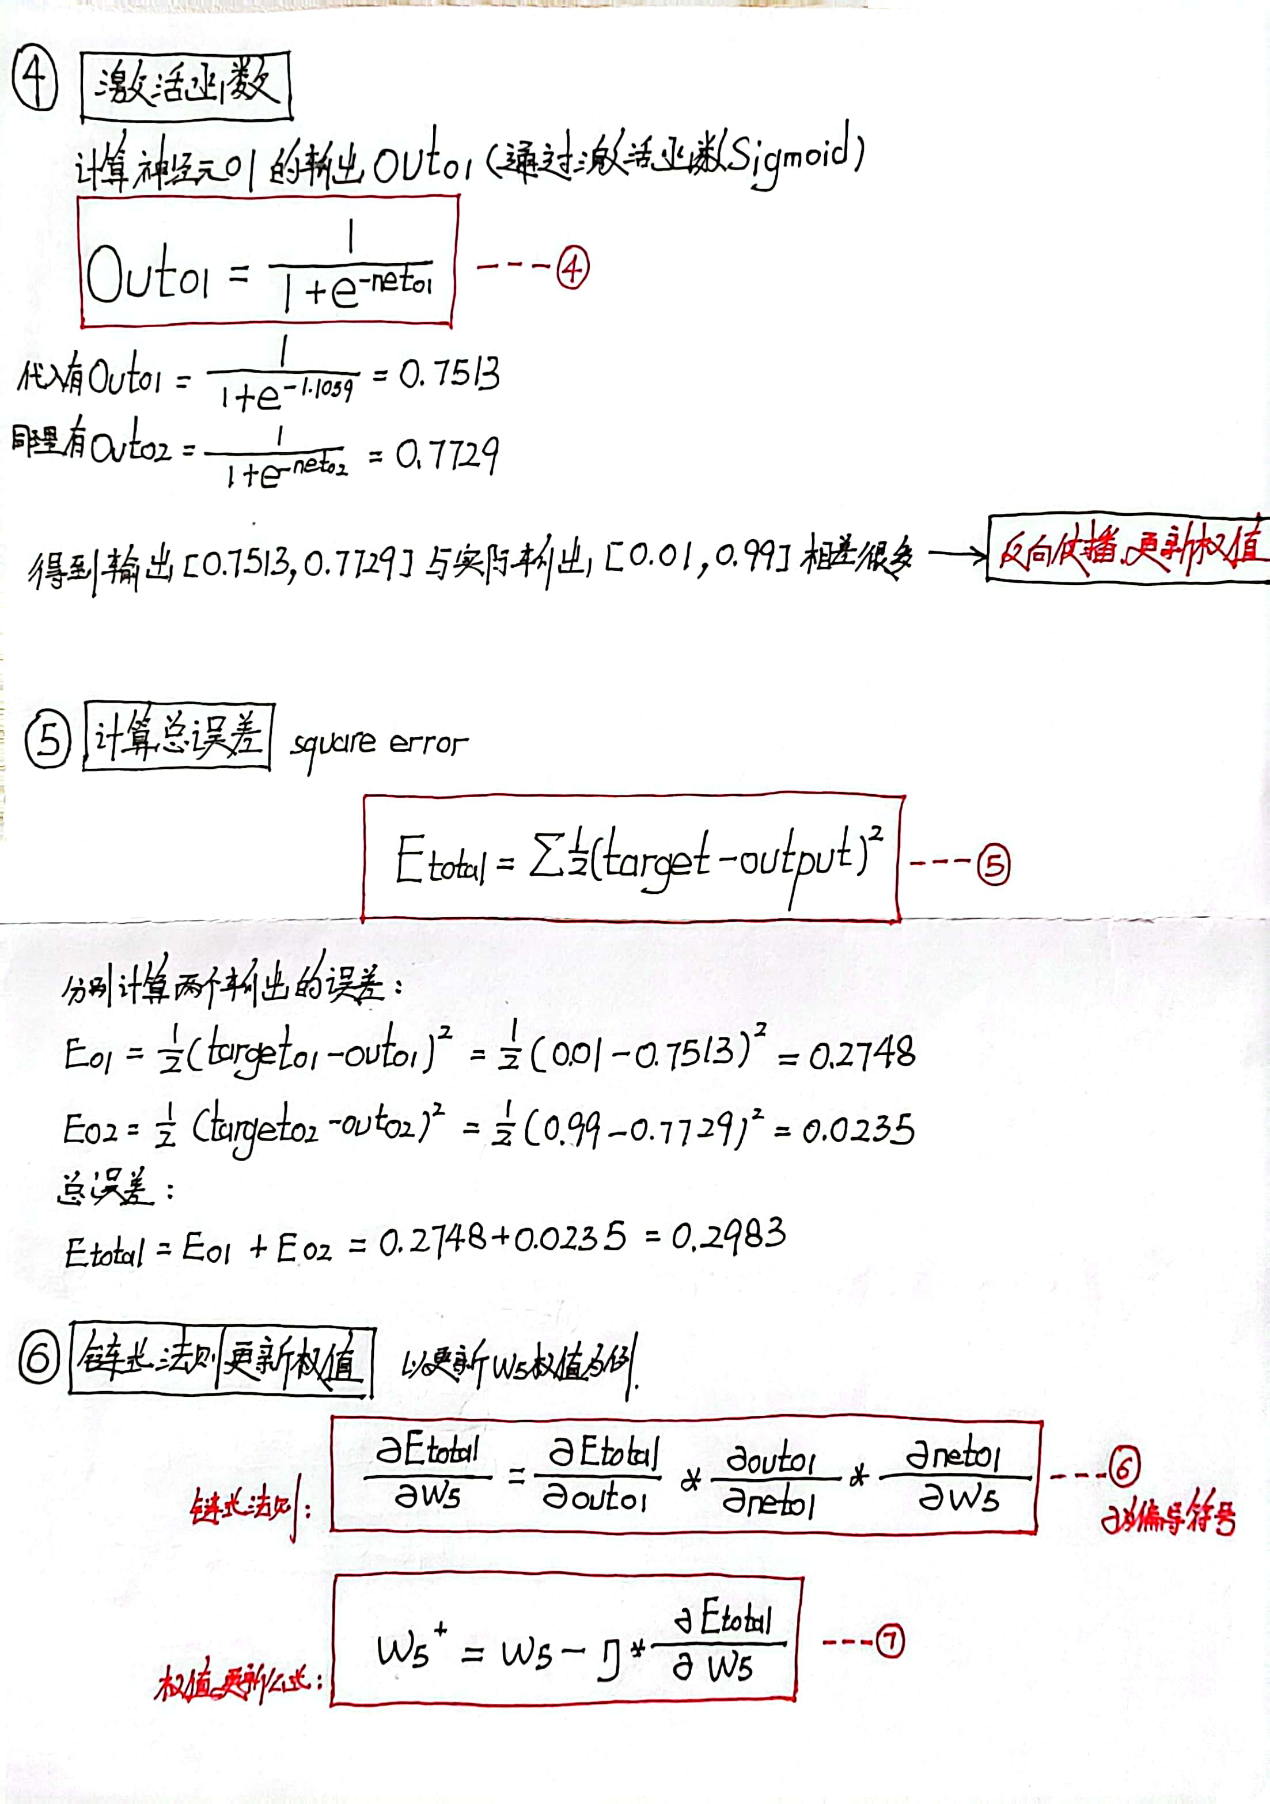 ④ 激活函数
计算神经元o1的输出Outo1(通过激活函数Sigmoid)
Outo1 = 1/(1+e^(-neto1)) ---④
代入有Outo1 = 1/(1+e^(-1.1059)) = 0.7513
同理有Outo2 = 1/(1+e^(-neto2)) = 0.7729
得到输出[0.7513,0.7729]与实际输出[0.01,0.99]相差很多 → 反向传播.更新权值
⑤ 计算总误差 square error
Etotal = Σ½(target-output)² ---⑤
分别计算两个输出的误差:
Eo1 = ½(targeto1-outo1)² = ½(0.01-0.7513)² = 0.2748
Eo2 = ½(targeto2-outo2)² = ½(0.99-0.7729)² = 0.0235
总误差:
Etotal = Eo1 + Eo2 = 0.2748+0.0235 = 0.2983
⑥ 链式法则更新权值 以更新W5权值为例.
链式法则: ∂Etotal/∂W5 = ∂Etotal/∂outo1 * ∂outo1/∂neto1 * ∂neto1/∂W5 ---⑥
∂为偏导符号
权值更新公式: W5⁺ = W5 - η * ∂Etotal/∂W5 ---⑦